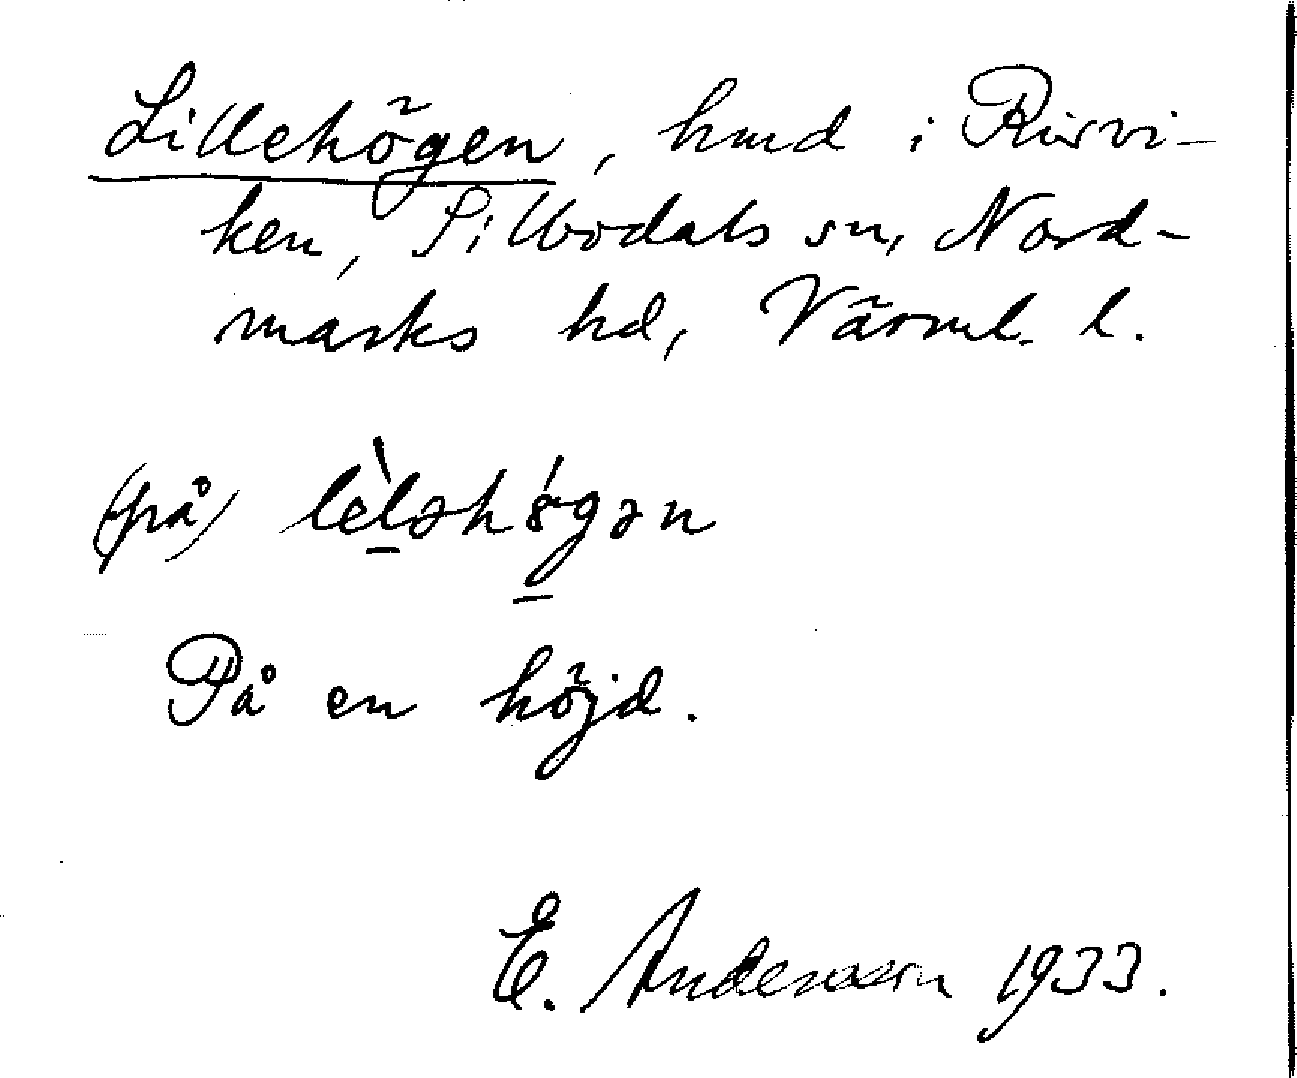 Lillehögen, hmd i Rirvi-
ken, Sillbodals sn, Nord-
marks hd, Värml. l.
(på) lèləhǿgən
På en höjd.
E. Andersson 1933.